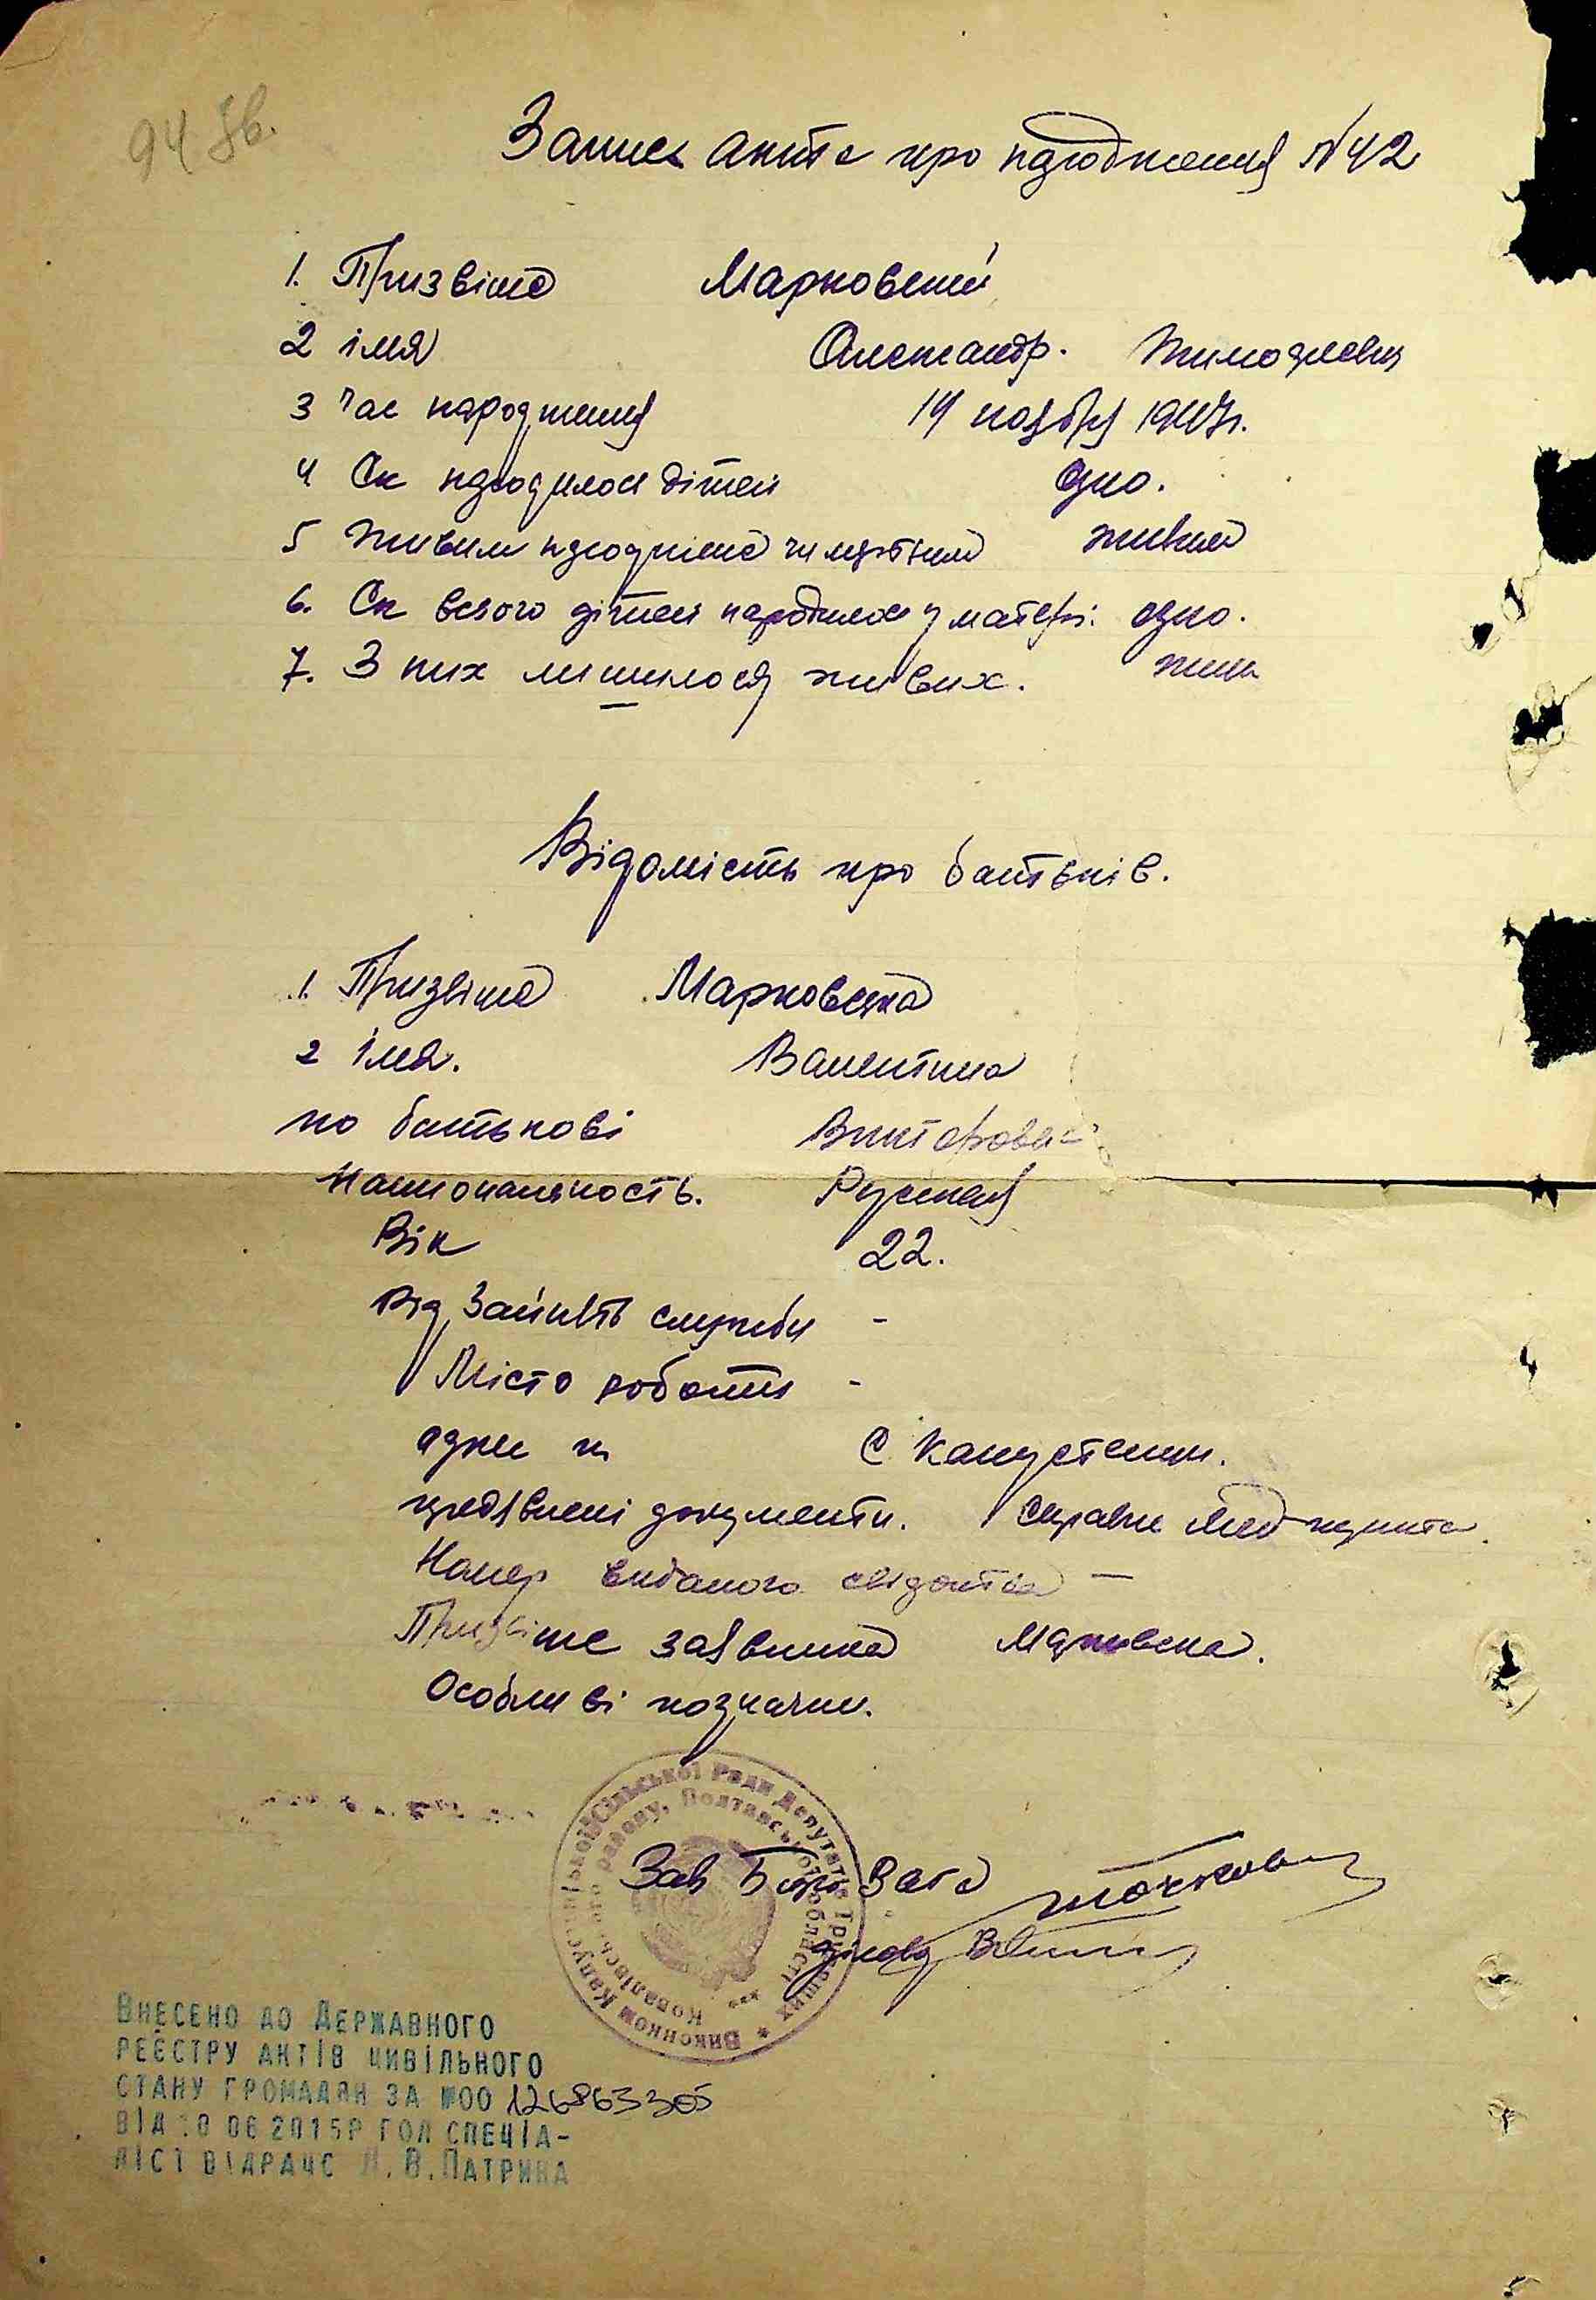 94 зв.
Запис акта про народження №42
1. Призвіще Марковский
2 імя Олександр. Тимофеевич
3 Час народження 14 ноября 1947г.
4 Ск народилося дітей одно.
5 Живим народжене чи мертвим живим
6. Ск всього дітей народилося у матері. одно.
7. З них лишилося живих.
Відомість про батьків.
1. Призвіще Марковска
2 імя. Валентина
по батькові Викторовна
Национальность. Русская
Вік 22.
Від Занять служби -
Місто роботи -
С Капустенци.
предявлені документи. Справка медпункта
Номер виданого свідотства —
Призвіще заявника Марковска.
Особливі позначки.
Виконком Капустинської Сільської Ради Депутатів Трудящих
Ковалівського району, Полтавської області
Зав Бюро Загса
діловод
Внесено до Державного
реєстру актів цивільного
стану громадян за №00 126863305
06 2015р гол спеціа-
ліст відрацс Л.В.Патрина